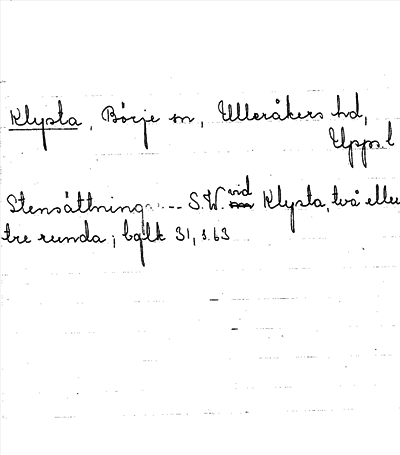 Klysta, Börje sn, Ulleråkers hd,
Upps. l
Stensättning .... S.W. vid Klysta, två eller
tre runda; bqlk 31, s. 63